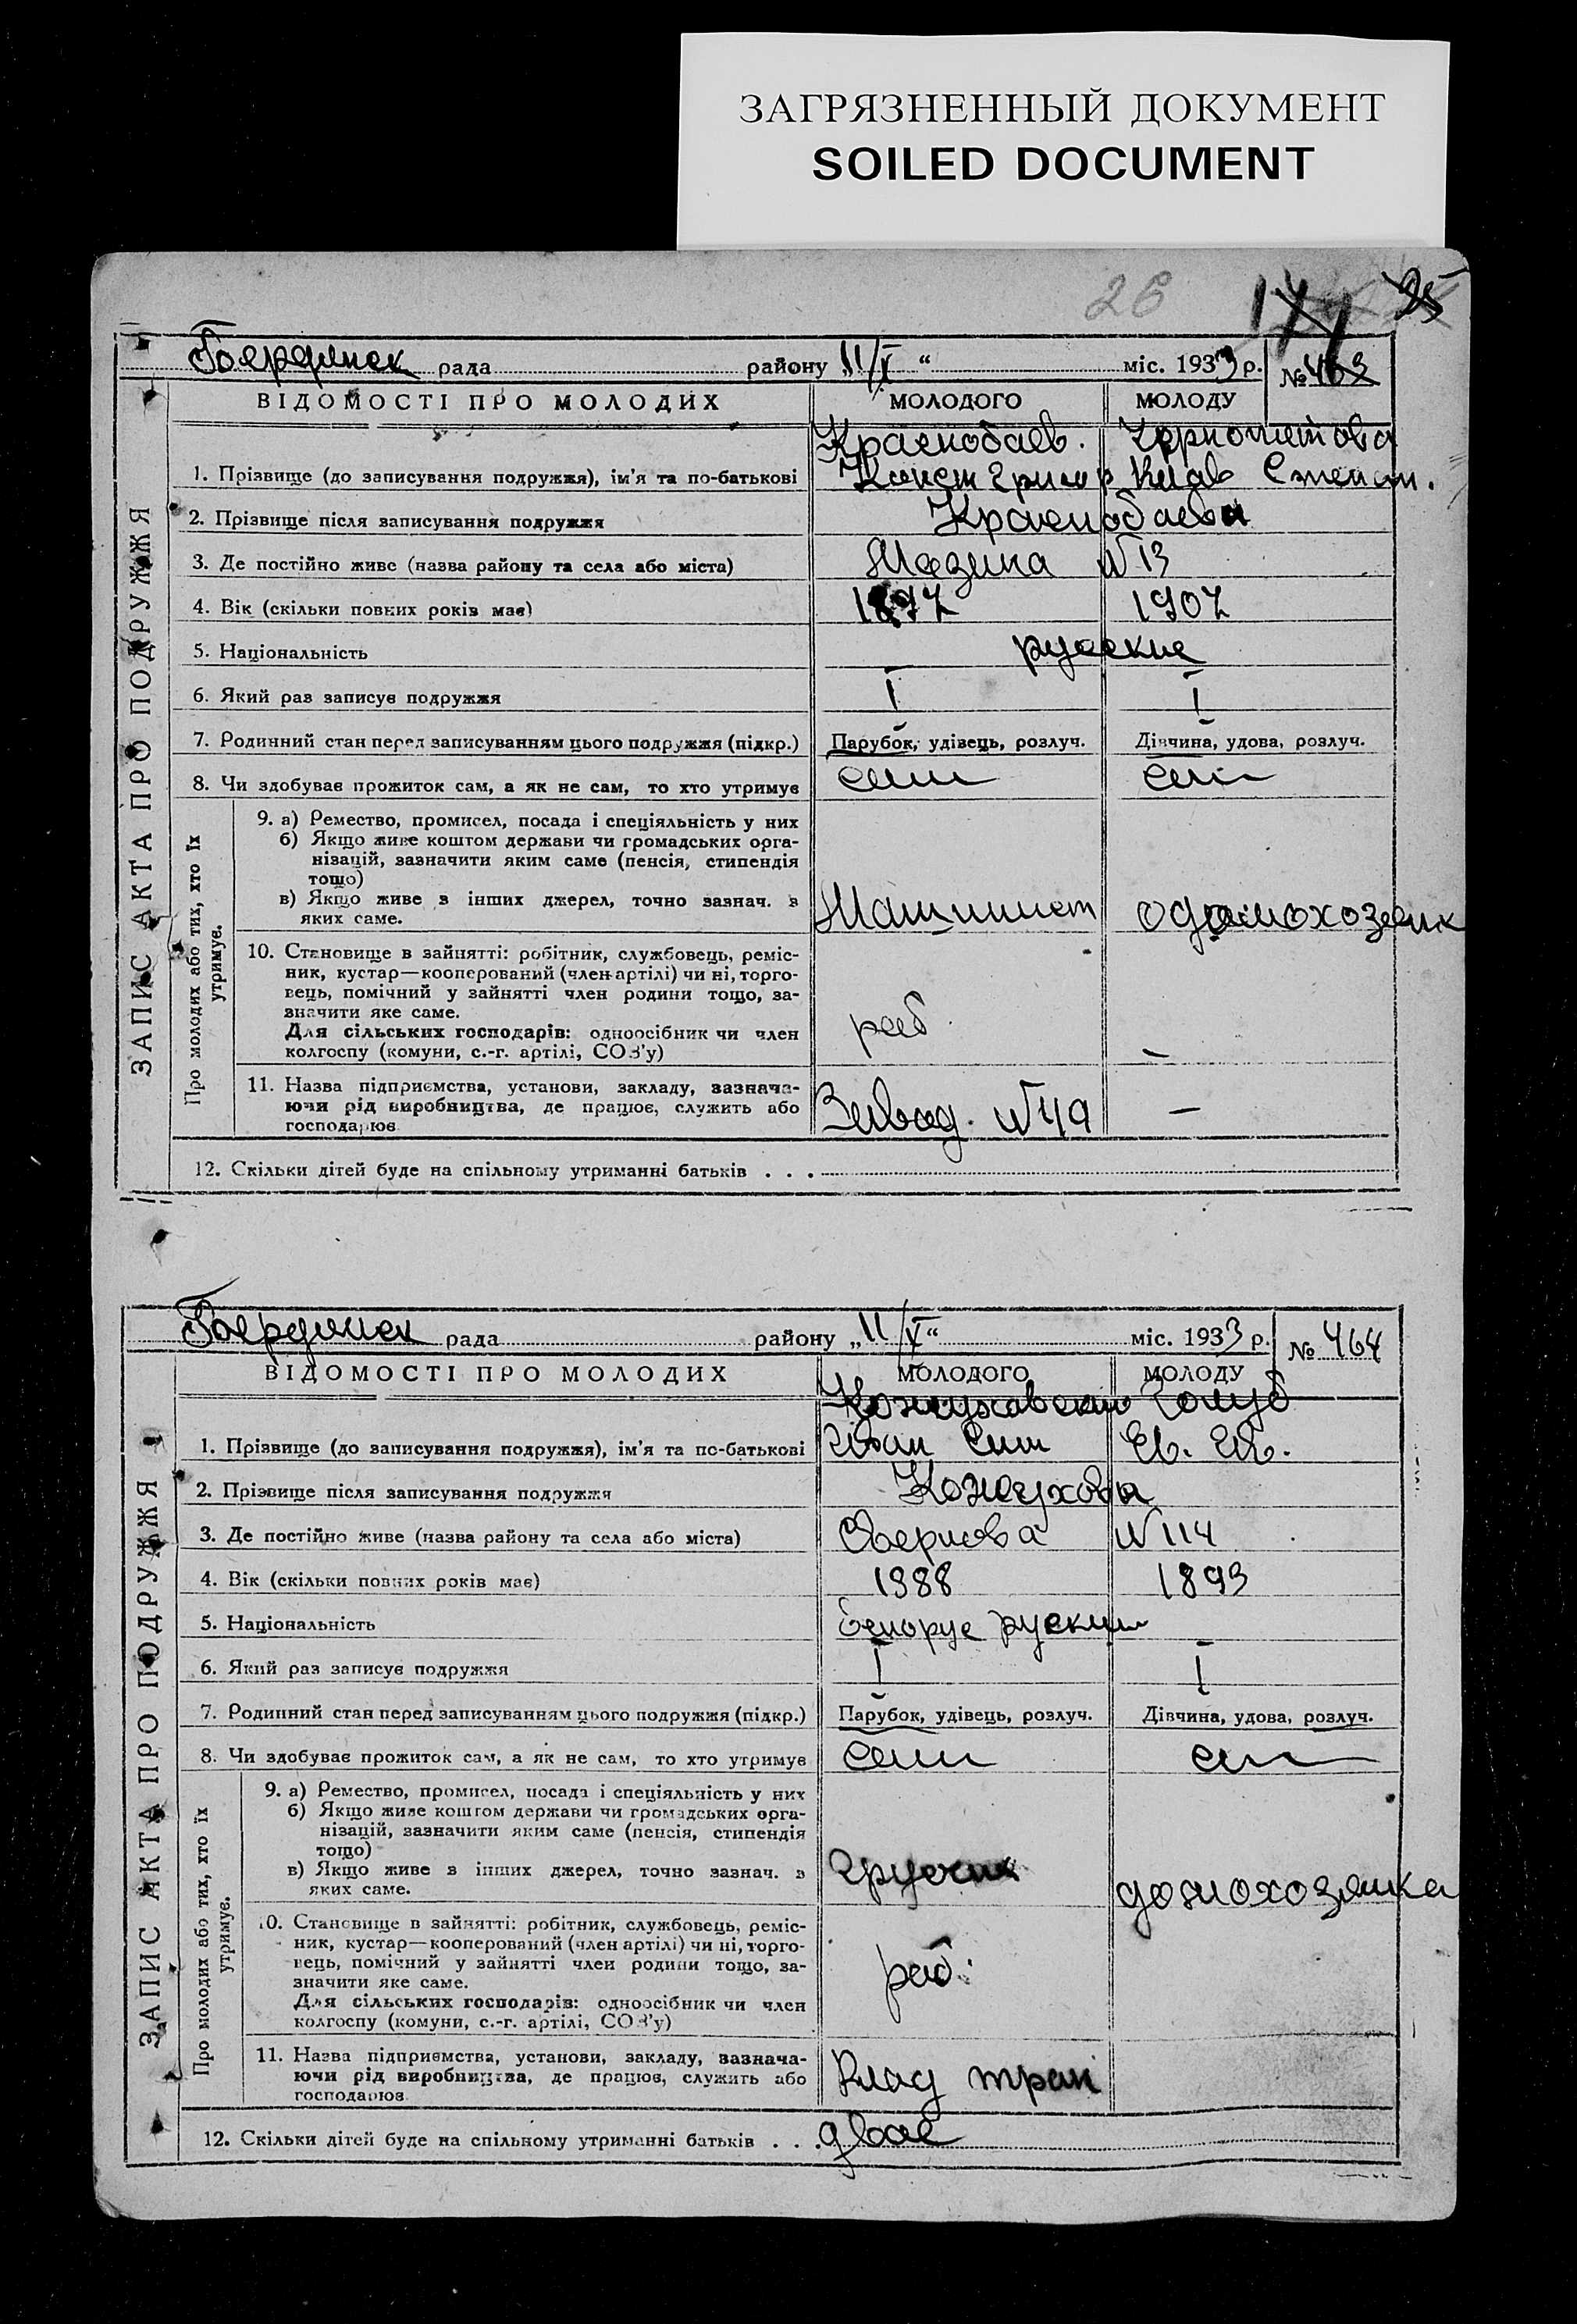 ЗАГРЯЗНЕННЫЙ ДОКУМЕНТ
SOILED DOCUMENT
26
рада району „11/X“ міс. 1933 р. № 463
ВІДОМОСТІ ПРО МОЛОДИХ МОЛОДОГО МОЛОДУ
Краснобаев.
1. Прізвище (до записування подружжя), ім'я та по-батькові
2. Прізвище після записування подружжя Краснобаевы
3. Де постійно живе (назва району та села або міста) №13
4. Вік (скільки повних років має) 1897 1907
5. Національність русские
6. Який раз записує подружжя I I
7. Родинний стан перед записуванням цього подружжя (підкр.) Парубок, удівець, розлуч. Дівчина, удова, розлуч.
8. Чи здобуває прожиток сам, а як не сам, то хто утримує
9. а) Ремество, промисел, посада і спеціяльність у них
б) Якщо живе коштом держави чи громадських орга-
нізацій, зазначити яким саме (пенсія, стипендія
тощо)
в) Якщо живе з інших джерел, точно зазнач. з
яких саме. Машинист
10. Становище в зайнятті: робітник, службовець, реміс-
ник, кустар—кооперований (член артілі) чи ні, торго-
вець, помічний у зайнятті член родини тощо, за-
значити яке саме. раб.
Для сільських господарів: одноосібник чи член
колгоспу (комуни, с.-г. артілі, СОЗ'у) —
11. Назва підприємства, установи, закладу, зазнача-
ючи рід виробництва, де працює, служить або
господарює —
12. Скільки дітей буде на спільному утриманні батьків . . .
ЗАПИС АКТА ПРО ПОДРУЖЖЯ
Про молодих або тих, хто їх
утримує.
рада району „11/X“ міс. 1933 р. № 464
ВІДОМОСТІ ПРО МОЛОДИХ МОЛОДОГО МОЛОДУ
Голуб
1. Прізвище (до записування подружжя), ім'я та по-батькові Ев.
2. Прізвище після записування подружжя Кожуховы
3. Де постійно живе (назва району та села або міста) №114
4. Вік (скільки повних років має) 1888 1893
5. Національність белорус
6. Який раз записує подружжя I I
7. Родинний стан перед записуванням цього подружжя (підкр.) Парубок, удівець, розлуч. Дівчина, удова, розлуч.
8. Чи здобуває прожиток сам, а як не сам, то хто утримує
9. а) Ремество, промисел, посада і спеціяльність у них
б) Якщо живе коштом держави чи громадських орга-
нізацій, зазначити яким саме (пенсія, стипендія
тощо)
в) Якщо живе з інших джерел, точно зазнач. з
яких саме. Грузчик домохозяйка
10. Становище в зайнятті: робітник, службовець, реміс-
ник, кустар—кооперований (член артілі) чи ні, торго-
вець, помічний у зайнятті член родини тощо, за-
значити яке саме. раб.
Для сільських господарів: одноосібник чи член
колгоспу (комуни, с.-г. артілі, СОЗ'у)
11. Назва підприємства, установи, закладу, зазнача-
ючи рід виробництва, де працює, служить або
господарює
12. Скільки дітей буде на спільному утриманні батьків . . . двое
ЗАПИС АКТА ПРО ПОДРУЖЖЯ
Про молодих або тих, хто їх
утримує.